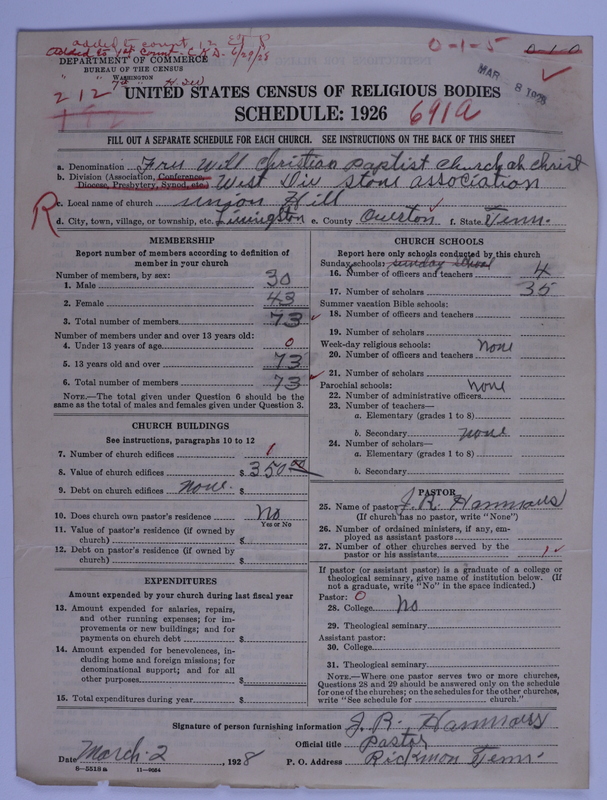 added to count 12
Added to 1st Count C.K.D. 6/29/28
0-1-5 0-1-0
MAR 8 1928
DEPARTMENT OF COMMERCE
BUREAU OF THE CENSUS
WASHINGTON
212
192
UNITED STATES CENSUS OF RELIGIOUS BODIES
SCHEDULE: 1926 691A
FILL OUT A SEPARATE SCHEDULE FOR EACH CHURCH. SEE INSTRUCTIONS ON THE BACK OF THIS SHEET
a. Denomination Free Will Christian Baptist Church of Christ
b. Division (Association, Conference,
Diocese, Presbytery, Synod, etc.) West Div Stone association
R
c. Local name of church union Hill
d. City, town, village, or township, etc. Livingston e. County Overton f. State Tenn.
MEMBERSHIP
Report number of members according to definition of
member in your church
Number of members, by sex:
1. Male 30
2. Female 43
3. Total number of members 73
Number of members under and over 13 years old:
4. Under 13 years of age 0
5. 13 years old and over 73
6. Total number of members 73
NOTE.—The total given under Question 6 should be
the same as the total of males and females given under Question 3.
CHURCH BUILDINGS
See instructions, paragraphs 10 to 12
7. Number of church edifices 1
8. Value of church edifices $ 350.00
9. Debt on church edifices none. $
10. Does church own pastor's residence No
Yes or No
11. Value of pastor's residence (if owned by
church) $
12. Debt on pastor's residence (if owned by
church) $
EXPENDITURES
Amount expended by your church during last fiscal year
13. Amount expended for salaries, repairs,
and other running expenses; for im-
provements or new buildings; and for
payments on church debt $
14. Amount expended for benevolences, in-
cluding home and foreign missions; for
denominational support; and for all
other purposes $
15. Total expenditures during year $
CHURCH SCHOOLS
Report here only schools conducted by this church
Sunday schools: sunday school
16. Number of officers and teachers 4
17. Number of scholars 35
Summer vacation Bible schools:
18. Number of officers and teachers
19. Number of scholars
Week-day religious schools: None
20. Number of officers and teachers
21. Number of scholars
Parochial schools: none
22. Number of administrative officers
23. Number of teachers—
a. Elementary (grades 1 to 8)
b. Secondary none
24. Number of scholars—
a. Elementary (grades 1 to 8)
b. Secondary
PASTOR
25. Name of pastor J. R. Hammons
(If church has no pastor, write "None")
26. Number of ordained ministers, if any, em-
ployed as assistant pastors
27. Number of other churches served by the
pastor or his assistants 1
If pastor (or assistant pastor) is a graduate of a college or
theological seminary, give name of institution below. (If
not a graduate, write "No" in the space indicated.)
Pastor: 0
28. College No
29. Theological seminary
Assistant pastor:
30. College
31. Theological seminary
NOTE.—Where one pastor serves two or more churches,
Questions 28 and 29 should be answered only on the schedule
for one of the churches; on the schedules for the other churches,
write "See schedule for church."
Signature of person furnishing information J. R. Hammons
Official title Pastor
Date March 2, 1928 P. O. Address Rickmon Tenn.
8—5518a 11—9084